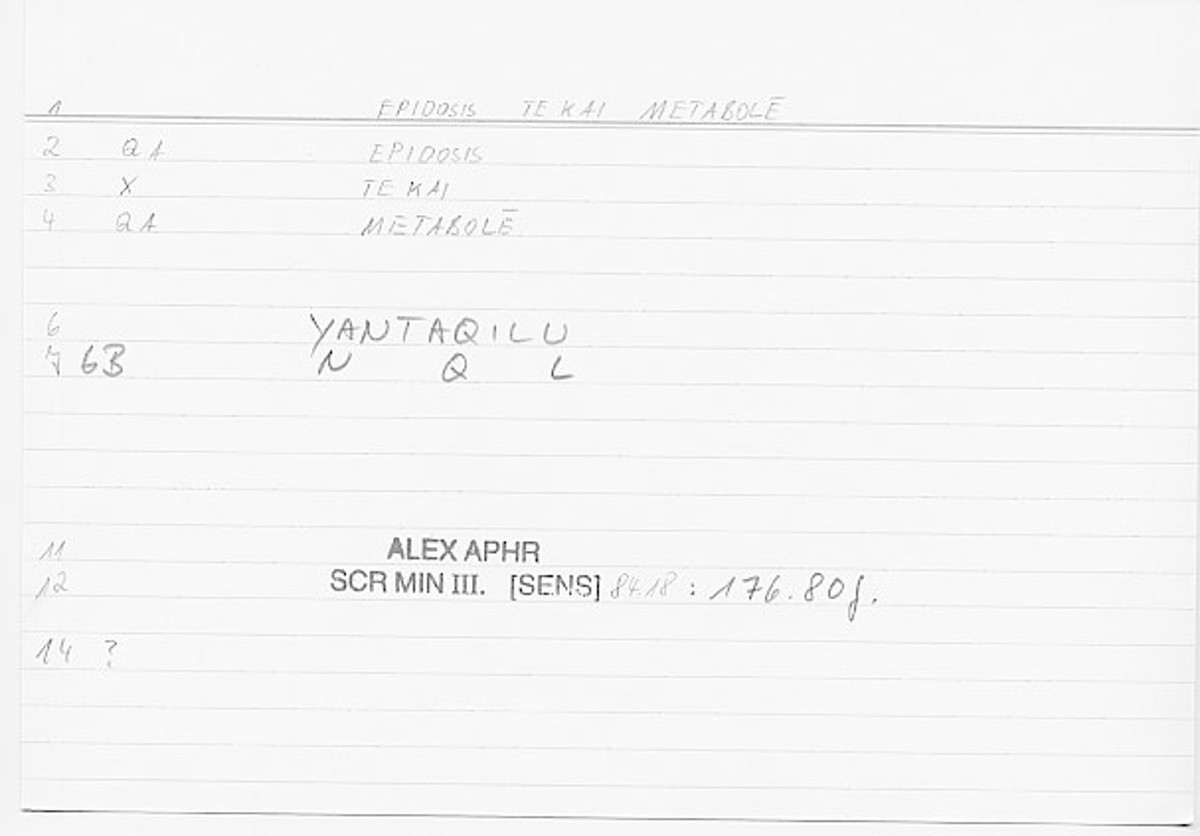 1 EPIDOSIS TE KAI METABOLĒ
2 QA EPIDOSIS
3 X TE KAI
4 QA METABOLĒ
6 YANTAQILU
7 6B N Q L
11 ALEX APHR
12 SCR MIN III. [SENS] 84.18 : 176.80f.
14 ?